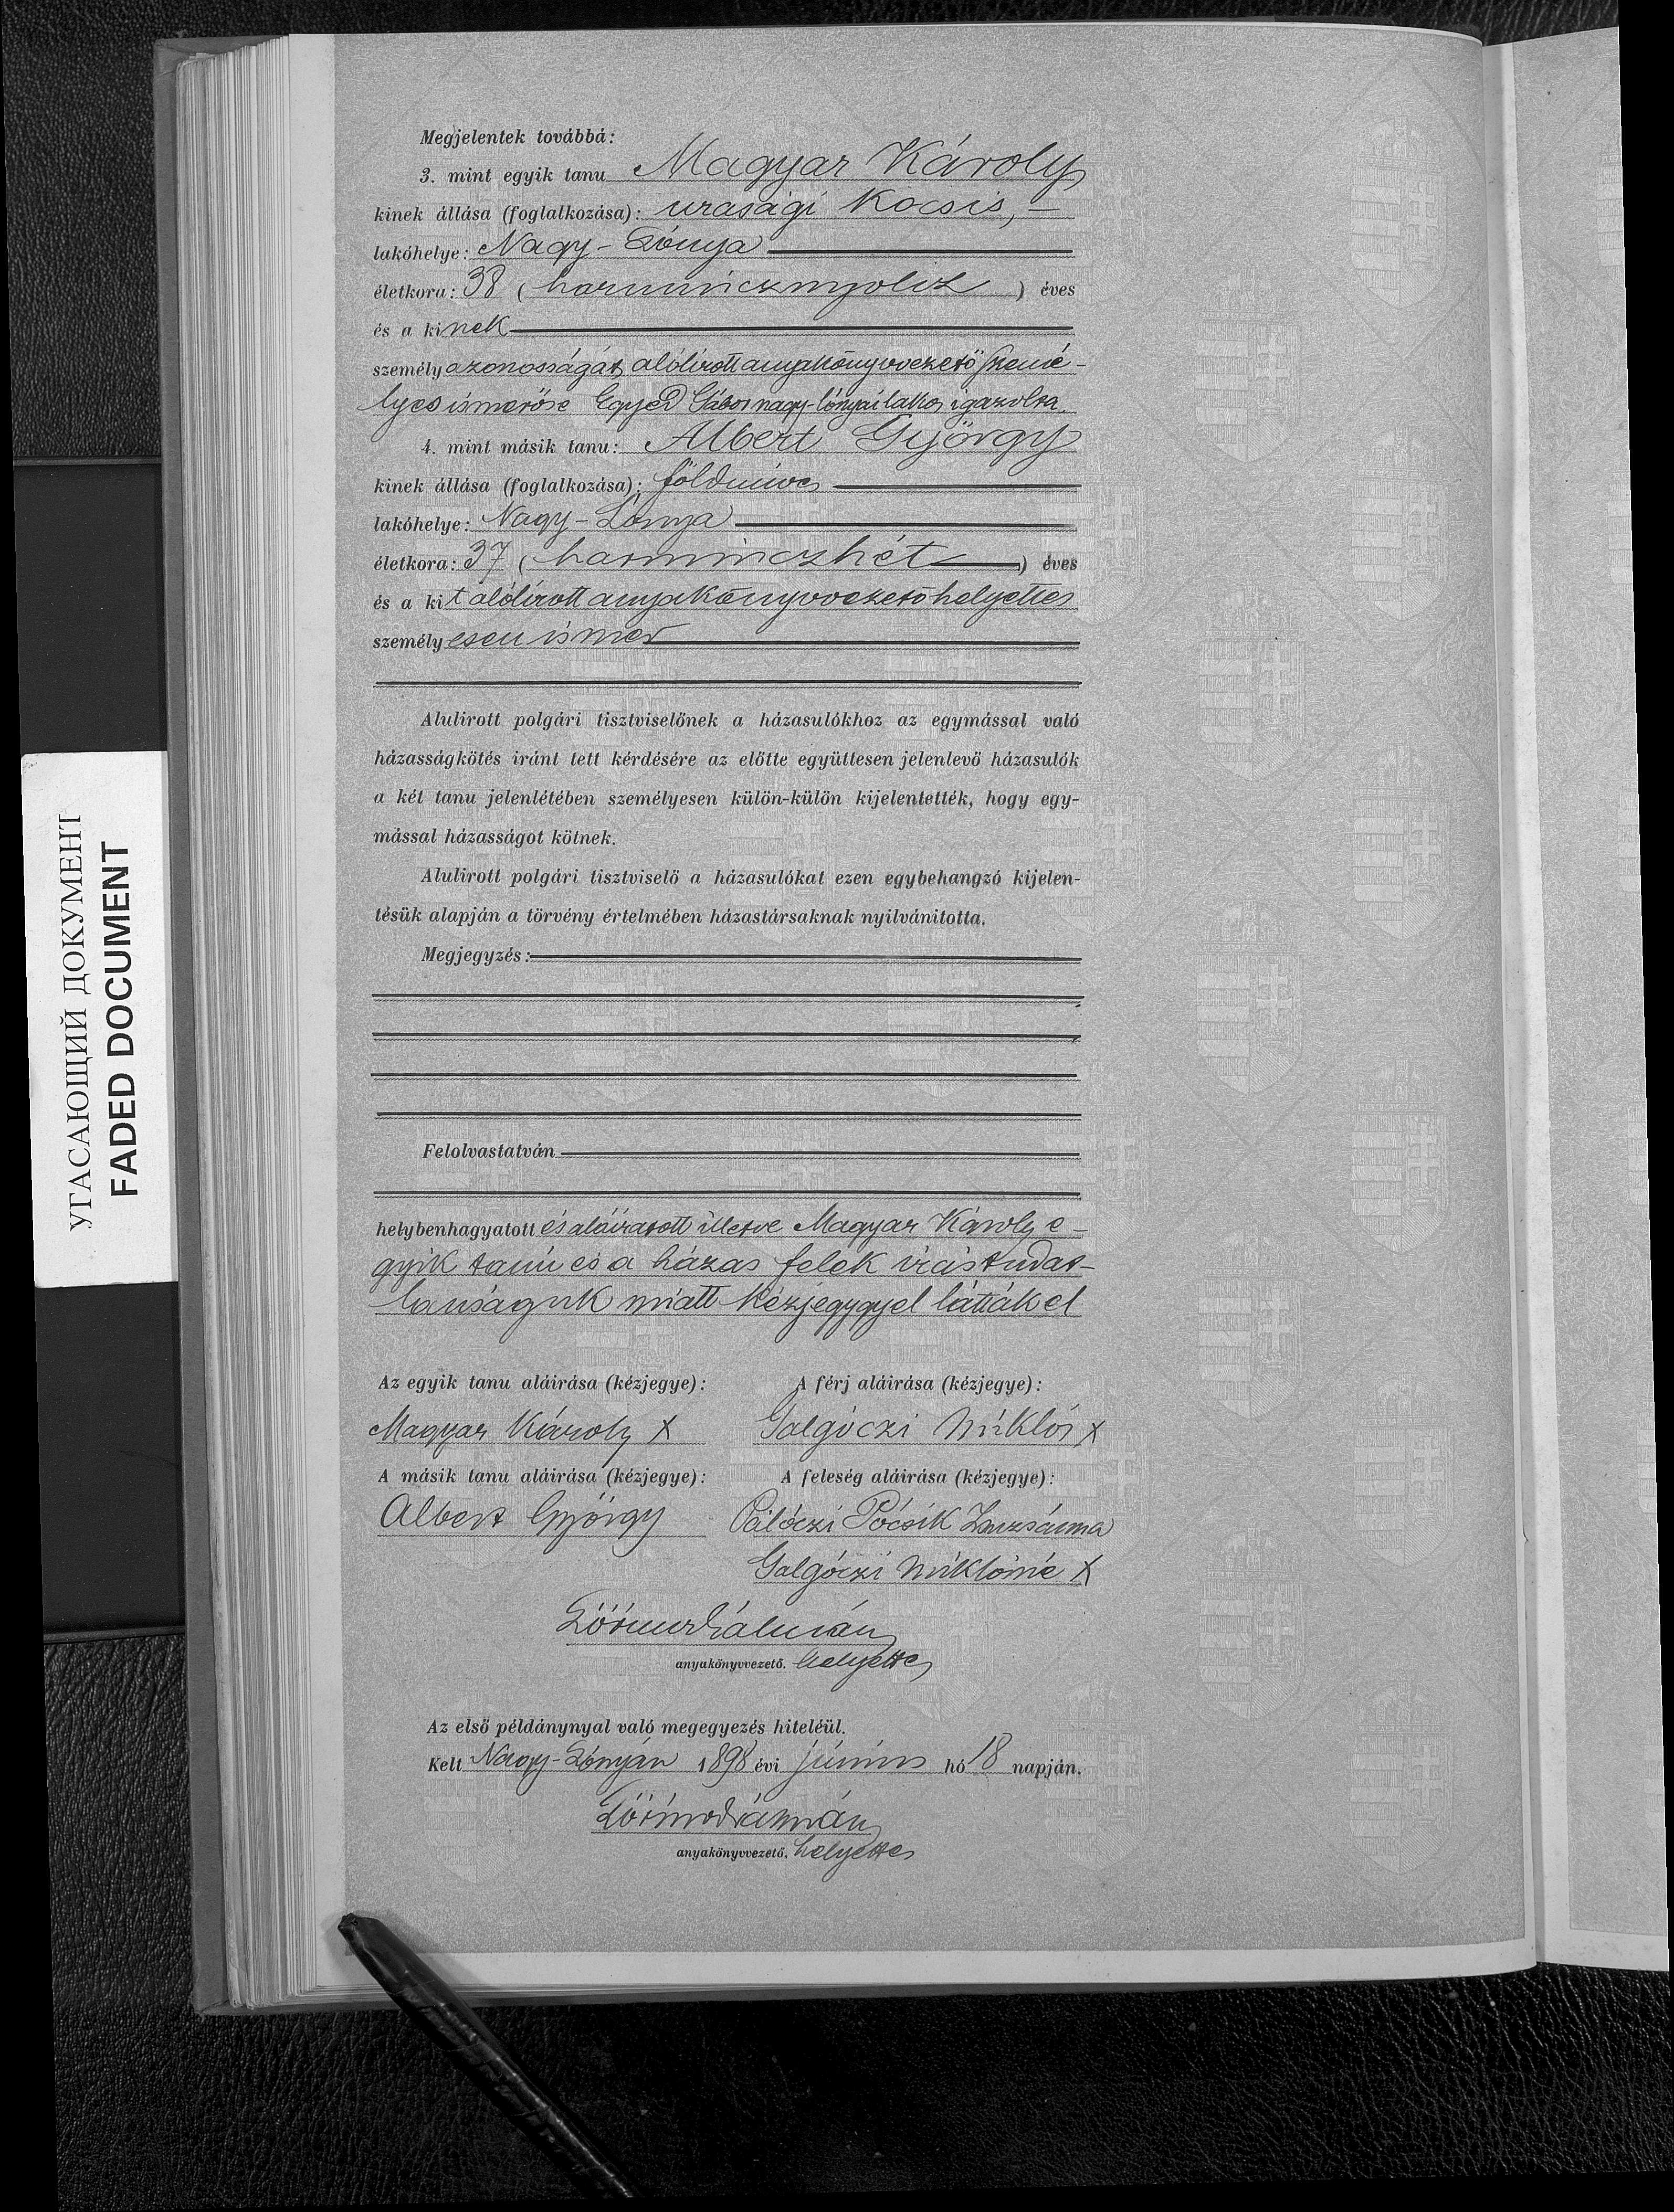 Megjelentek továbbá:
3. mint egyik tanu Magyar Károly
kinek állása (foglalkozása): urasági kocsis, –
lakóhelye: Nagy-Lónya
életkora: 38 (harmincznyolcz) éves
és a kinek
személyazonosságát alólirott anyakönyvvezető szemé-
lyes ismerőse Egyed Gábor nagy-lónyai lakos igazolta.
4. mint másik tanu: Albert György
kinek állása (foglalkozása): földmüves
lakóhelye: Nagy-Lónya
életkora: 37 (harminczhét) éves
és a kit alólirott anyakönyvvezető helyettes
személyesen ismer
Alulirott polgári tisztviselőnek a házasulókhoz az egymással való
házasságkötés iránt tett kérdésére az előtte együttesen jelenlevő házasulók
a két tanu jelenlétében személyesen külön-külön kijelentették, hogy egy-
mással házasságot kötnek.
Alulirott polgári tisztviselő a házasulókat ezen egybehangzó kijelen-
tésük alapján a törvény értelmében házastársaknak nyilvánitotta.
Megjegyzés:
Felolvastatván
helybenhagyatott és aláiratott illetve Magyar Károly e-
gyik tanú és a házas felek irástudat-
lanságuk miatt kézjegygyel látták el
Az egyik tanu aláirása (kézjegye): A férj aláirása (kézjegye):
Magyar Károly X Galgóczi Miklós X
A másik tanu aláirása (kézjegye): A feleség aláirása (kézjegye):
Albert György Pálóczi Pócsik Zsuzsánna
Galgóczi Miklósné X
Kálmán
anyakönyvvezető. helyettes
Az első példánynyal való megegyezés hiteléül.
Kelt Nagy-Lónyán 1898 évi június hó 18 napján.
Kálmán
anyakönyvvezető. helyettes
УГАСАЮЩИЙ ДОКУМЕНТ
FADED DOCUMENT